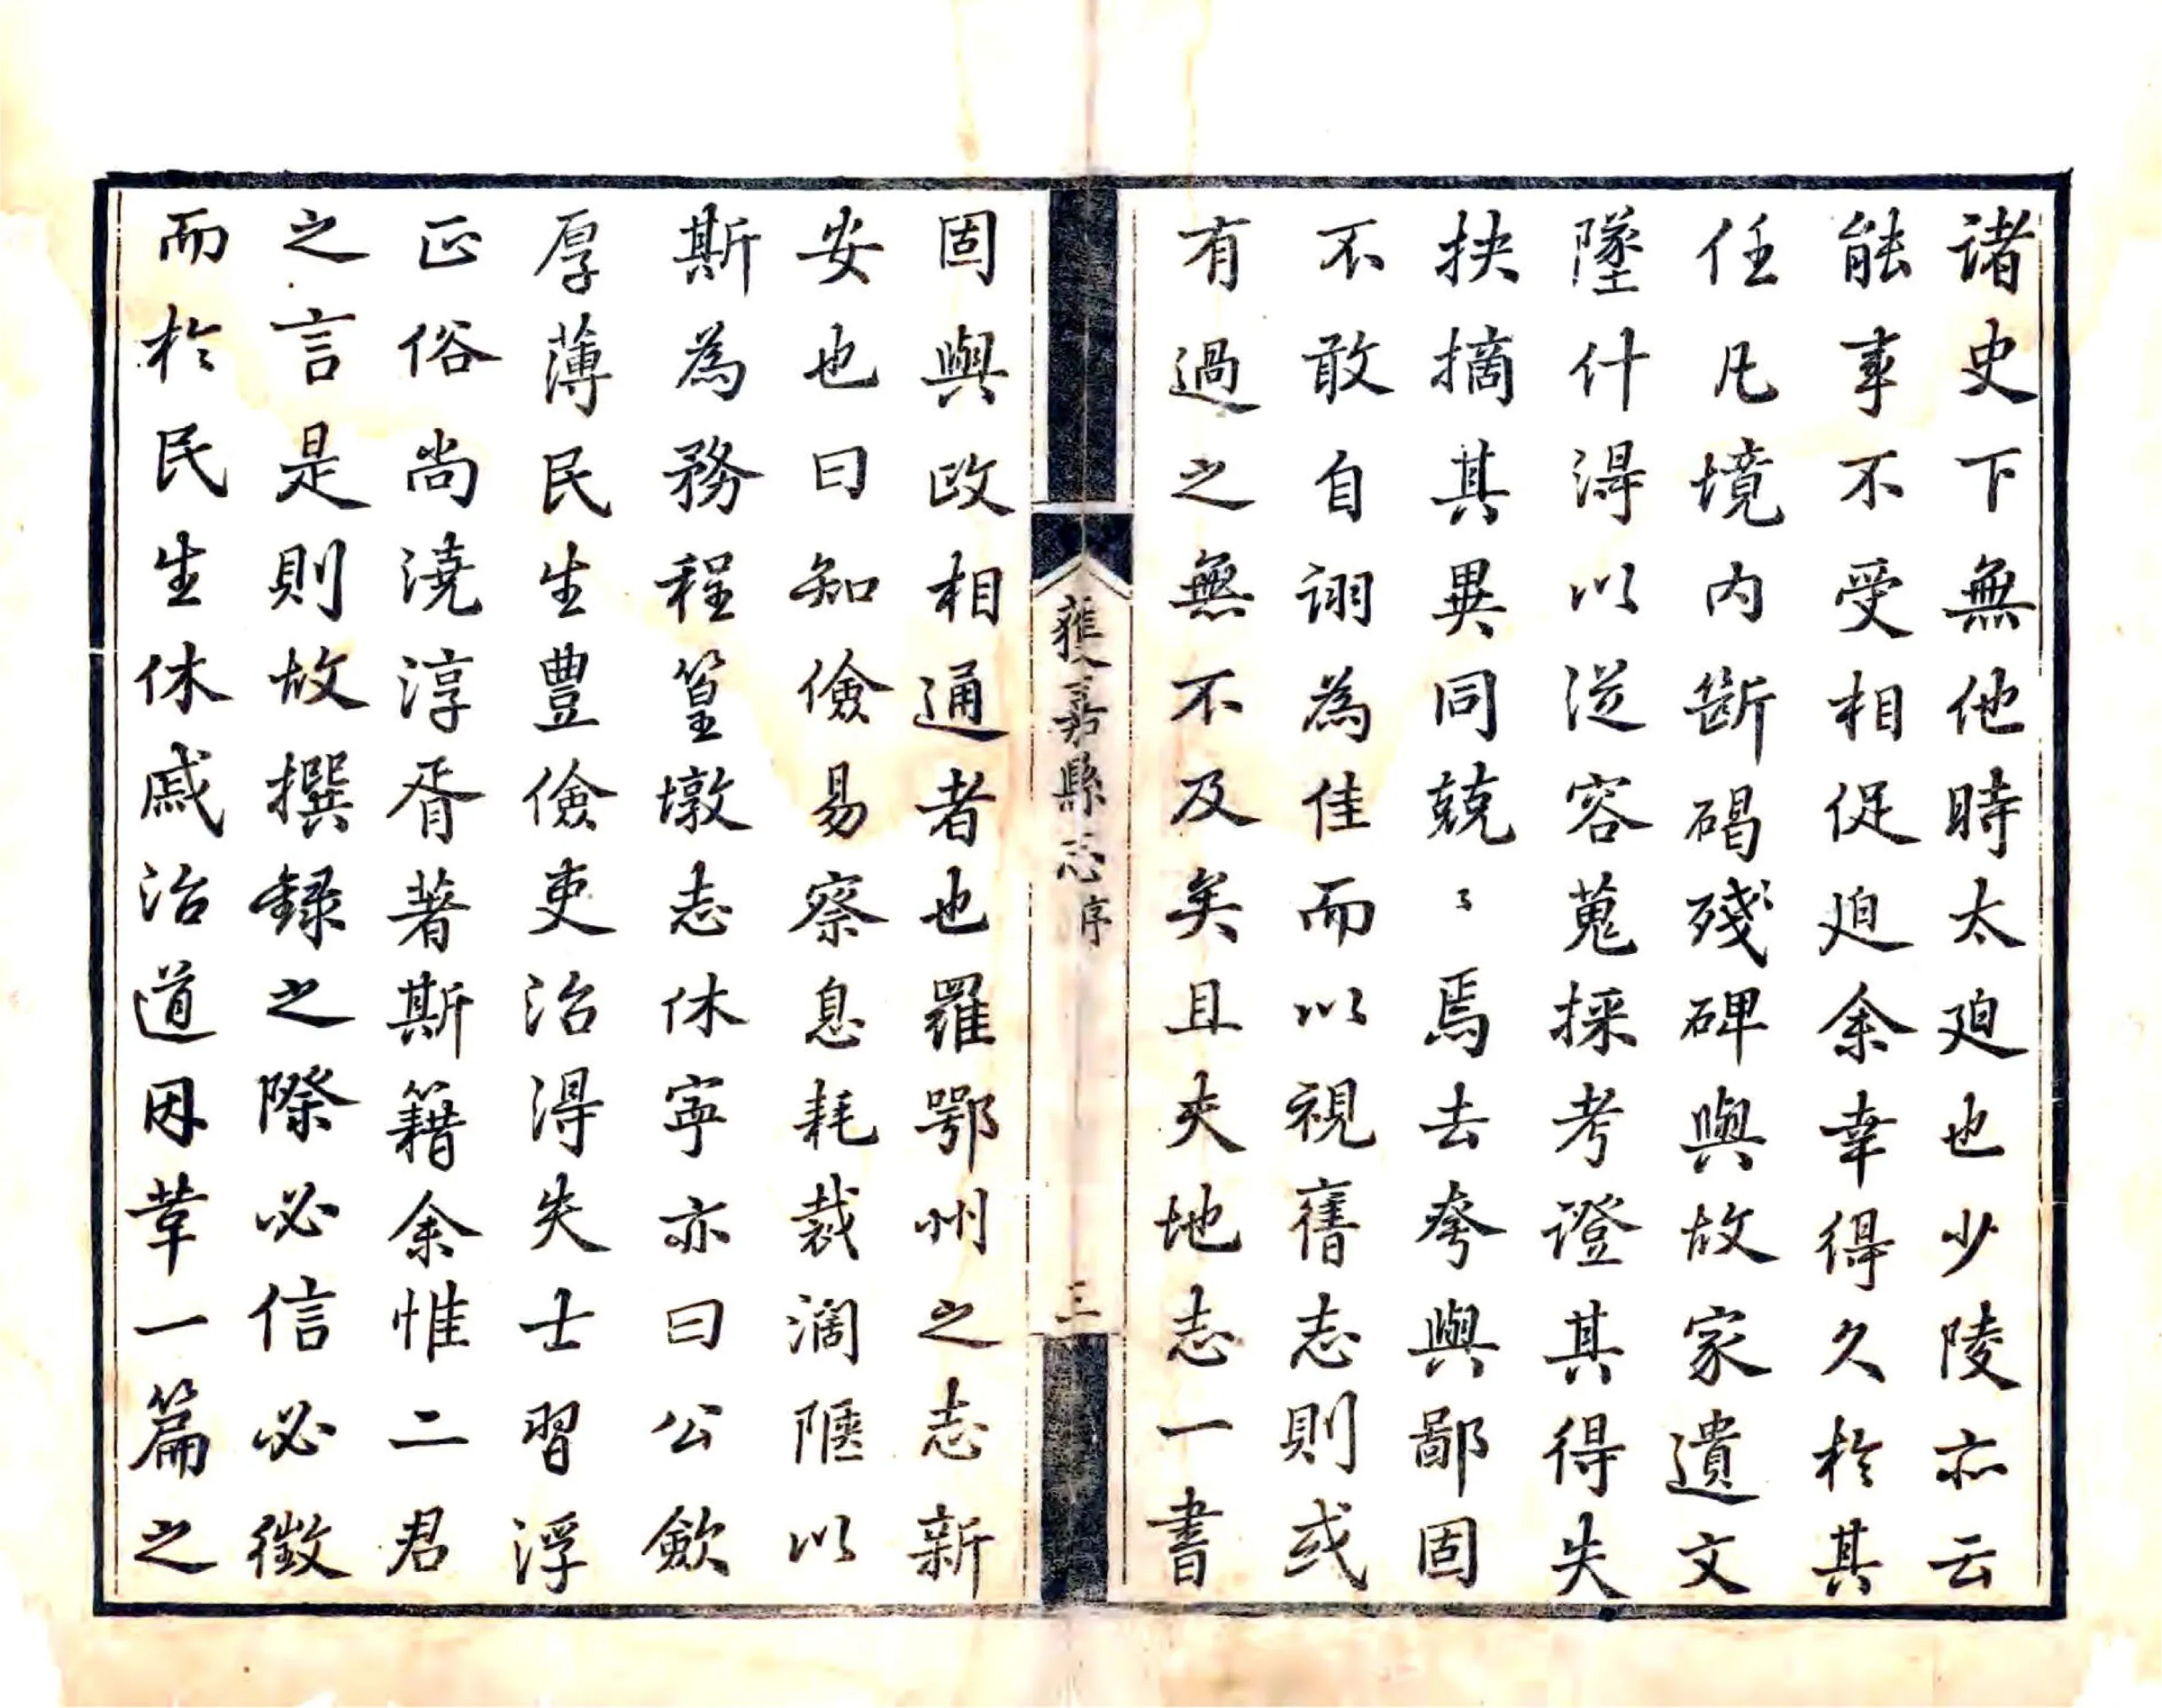 诸史下無他時太廹也少陵亦云
能事不受相促廹余幸得久於其
任凡境内斷碣殘碑與故家遺文
墜什淂以從容蒐採考證其得失
抉摘其異同兢〻焉去夸與鄙固
不敢自詡為佳而以視舊志則或
有過之無不及矣且夫地志一書
雙嘉縣志 序
三
固與政相通者也羅鄂州之志新
安也曰知儉易察息耗裁濶陿以
斯為務程篁墩志休寧亦曰公歛
厚薄民生豊儉吏治淂失士習浮
正俗尚澆淳胥著斯籍余惟二君
之言是則故撰録之際必信必徵
而於民生休戚治道因革一篇之